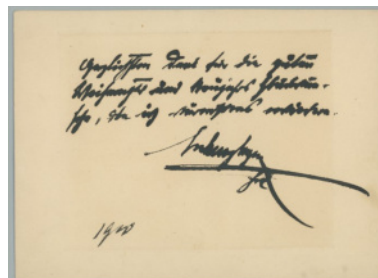 Herzlichsten Dank für die guten
Weihnachts und Neujahrs Glückwün-
sche, die ich erwidere.